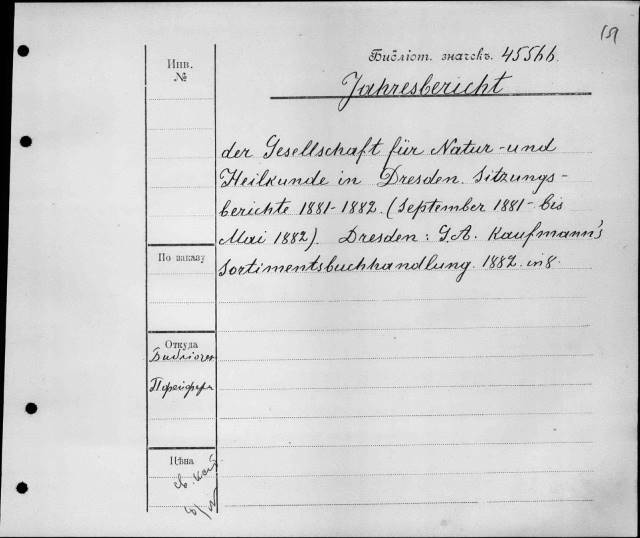 Библіот. значекъ. 455bb.
Jahresbericht
der Gesellschaft für Natur-und
Heilkunde in Dresden. Sitzungs-
berichte 1881-1882. (September 1881- bis
Mai 1882). Dresden: G.A. Kaufmann's
Sortimentsbuchhandlung. 1882. in 8.
Инв.
№
По заказу
Откуда
Цѣна